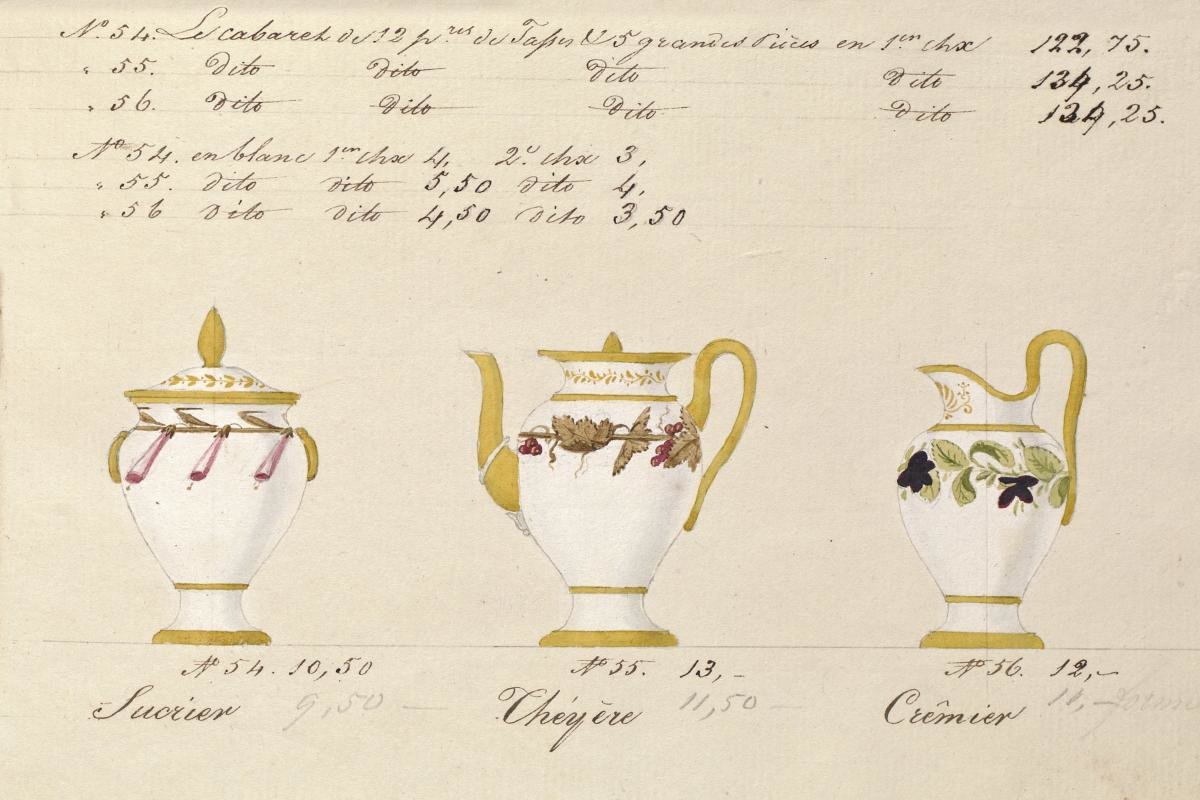 N.º 54. Le cabaret de 12 p.res de Tasses & 5 grandes Pièces en 1.er chx 122,75.
" 55. Dito Dito Dito Dito 134,25.
" 56. Dito Dito Dito Dito 134,25.
Nº 54. en blanc 1.er chx 4, 2.º chx 3,
" 55. dito dito 5,50 dito 4,
" 56 dito dito 4,50 dito 3,50
Nº 54. 10,50
Sucrier 9,50 —
Nº 55. 13,–
Théyère 11,50 —
Nº 56. 12,–
Crêmier 11,–